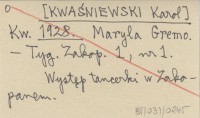 [KWAŚNIEWSKI Karol]
Kw. 1928. Maryla Gremo.
— Tyg. Zakop. 1, nr 1.
Występ tancerki w Zako-
panem.